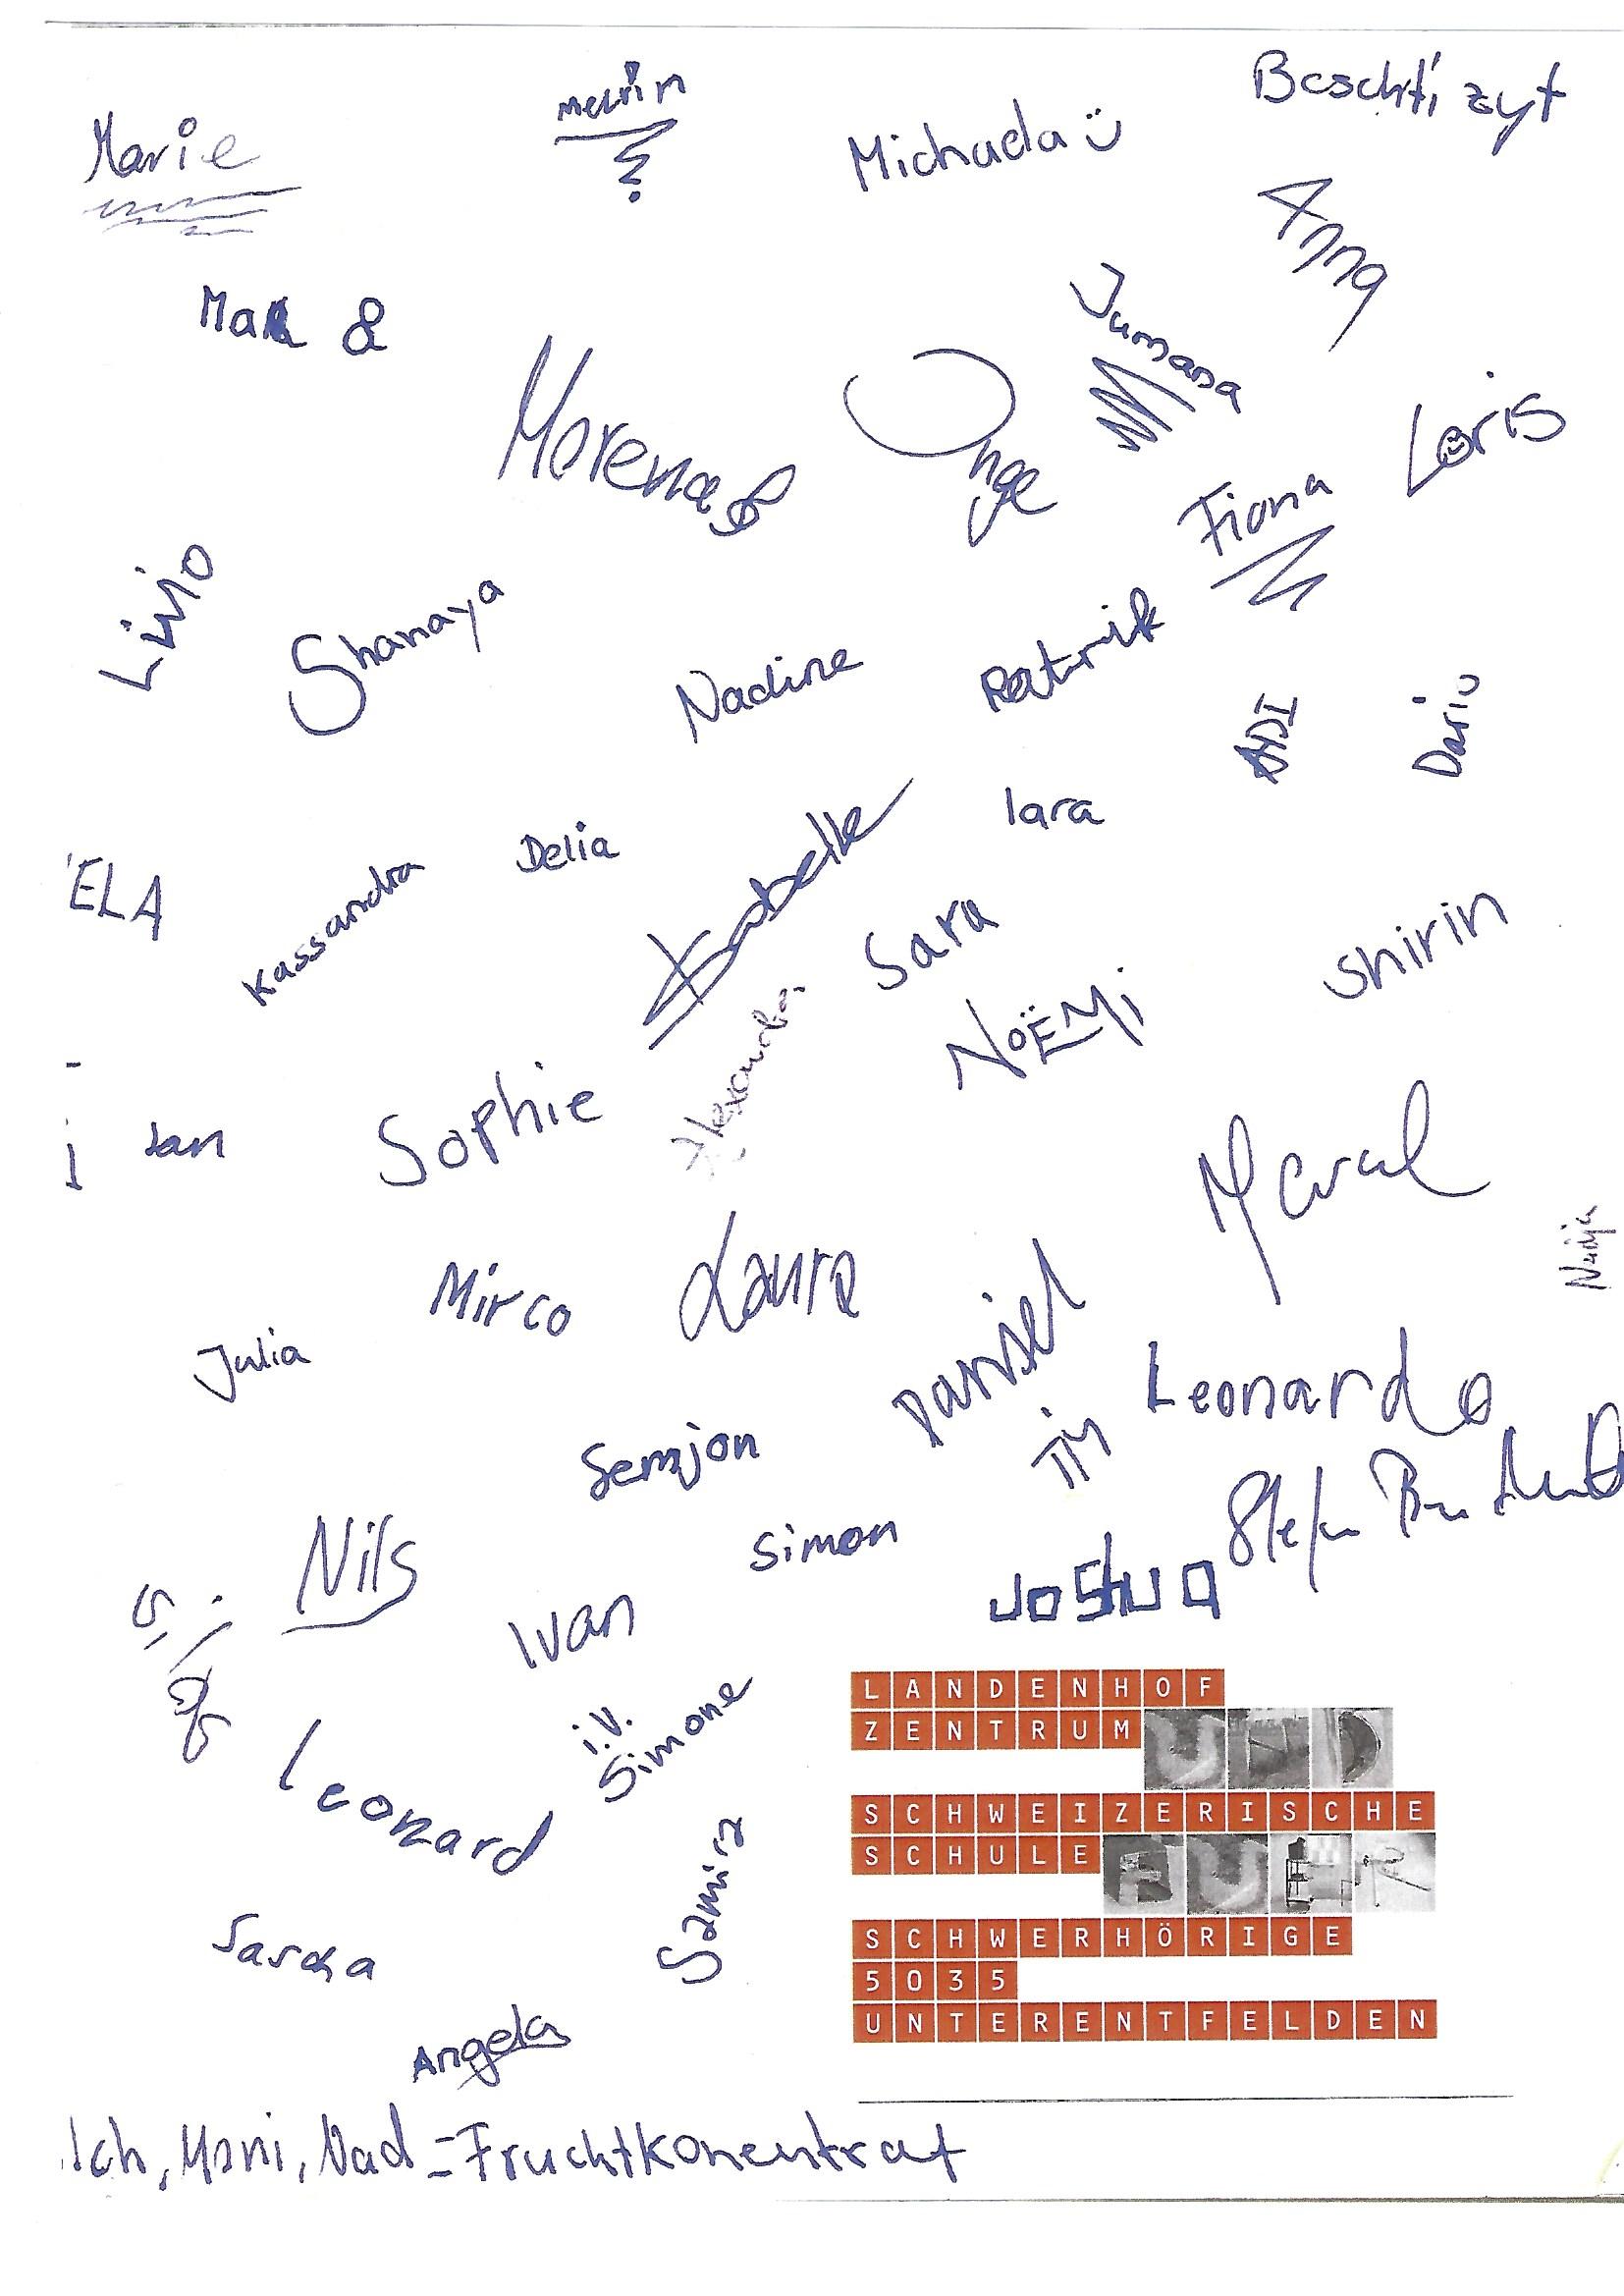 Marie
Melvin
Michaela ü
Beschti zyt
Anna
Jumana
Morena
Inge
Loris
Fiona
Livio
Shanaya
Nadine
Patrik
Dario
lara
ELA
Kassandra
Delia
Isabelle
Sara
Shirin
Alexandra
NoËMi
Jan
Sophie
Mirco
Laura
Julia
Daniel
Leonardo
Tim
Semjon
Simon
Nils
Ivan
Joshua
i.V.
Simone
Leonard
Samira
Sascha
Angela
LANDENHOF
ZENTRUM UND
SCHWEIZERISCHE
SCHULE FÜR
SCHWERHÖRIGE
5035
UNTERENTFELDEN
Ich, Moni, Nad = Fruchtkonentrat